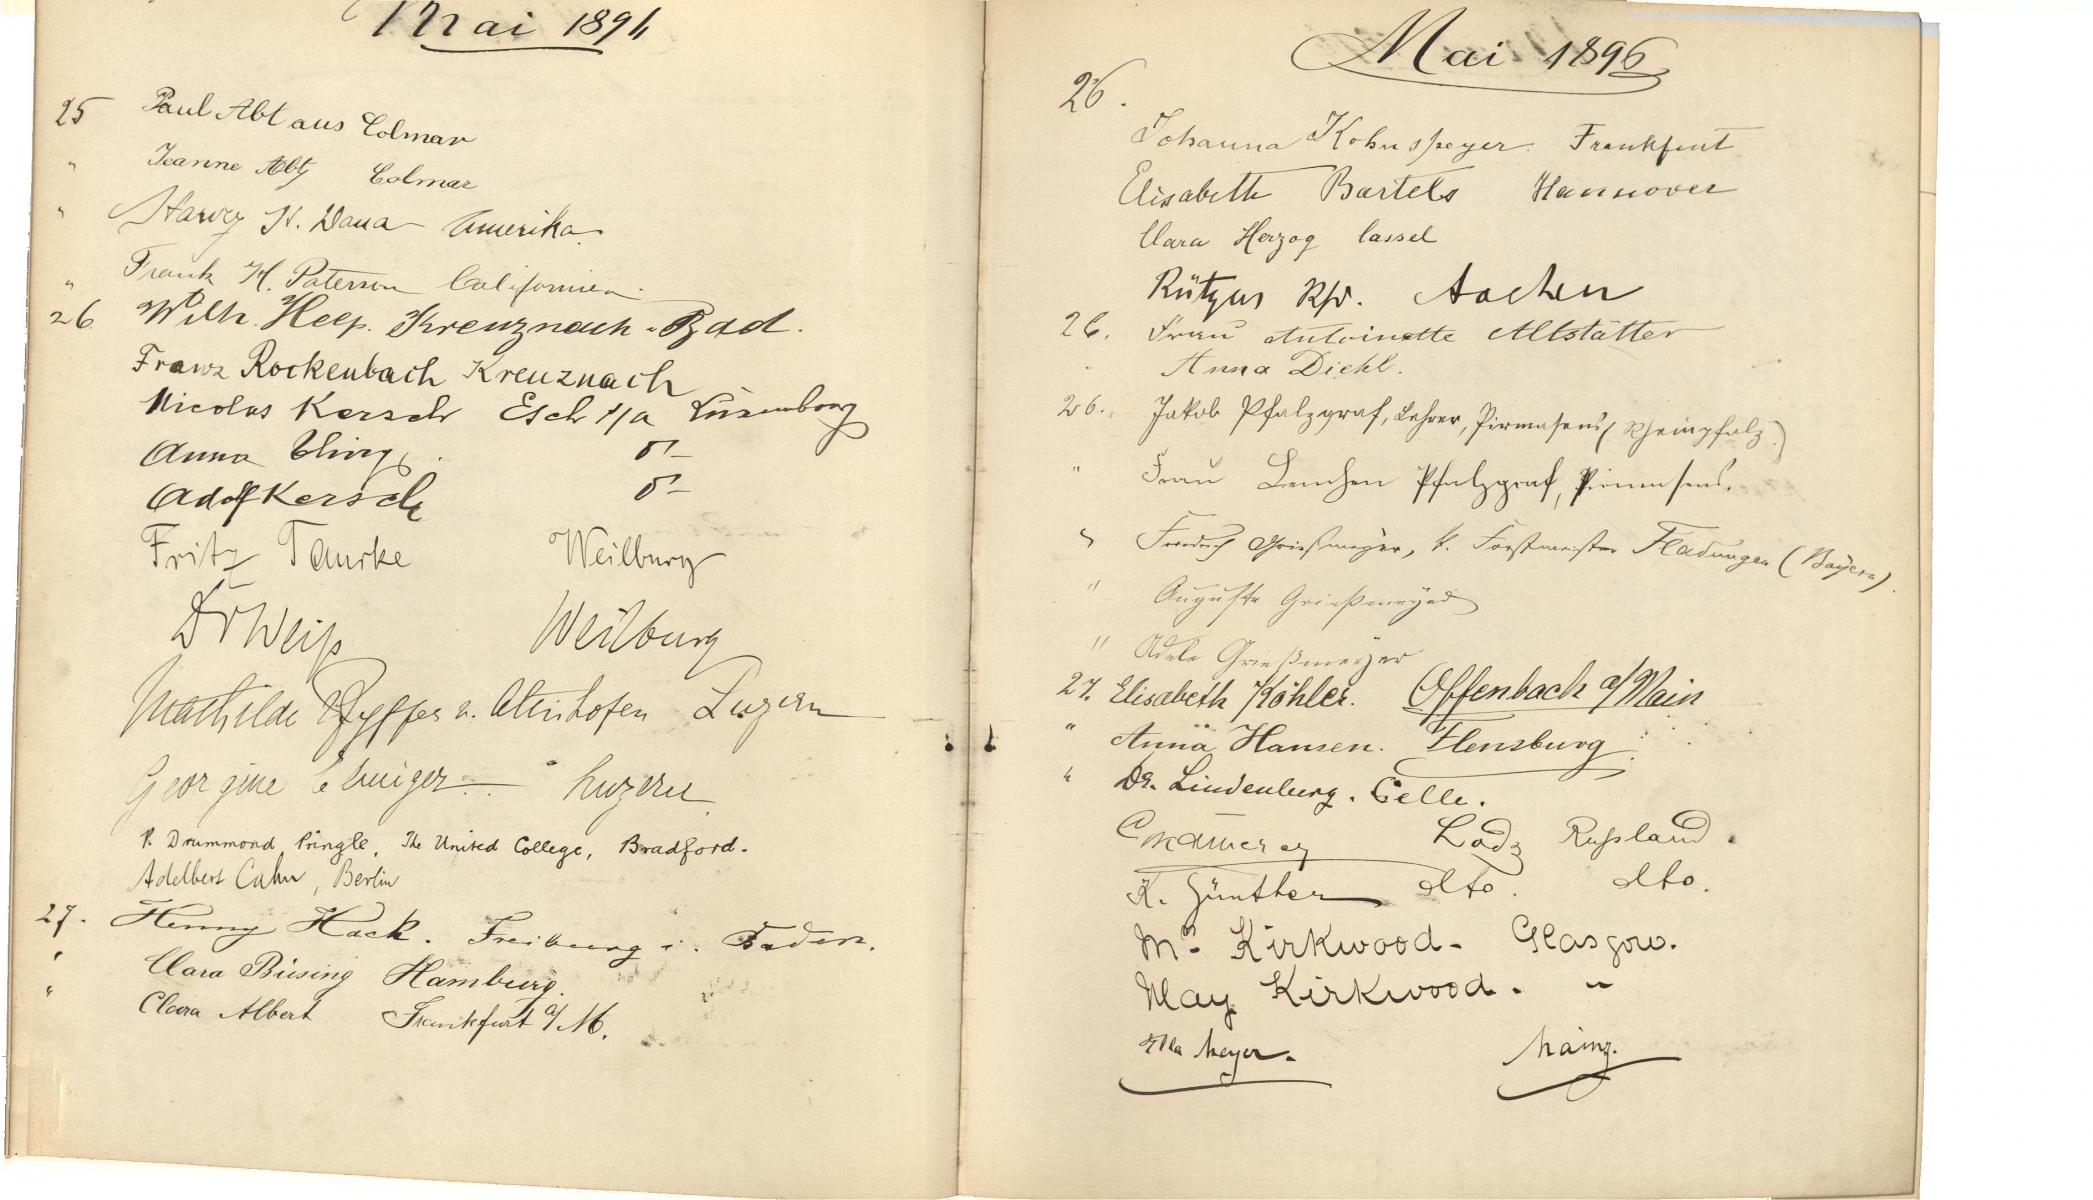 Mai 189
25 Paul Abt aus Colmar
" Jeanne Abt Colmar
" Harvey N. Dana Amerika
" Frank H. Paterson Californien.
26. Wilh. Heep. Kreuznach-Bad.
Franz Rockenbach Kreuznach
Nicolas Kersch Esch s/a Luxembourg
Anna
Adolf Kersch
Fritz Weilburg
Dr Weiß Weilburg
Mathilde Pfyffer v. Altishofen Luzern
Georgine Luzern
P. Drummond Pringle, The United College, Bradford.
Adelbert Cahn, Berlin
27. Henny Hack. Freiburg i. Baden.
" Clara Büsing Hamburg.
" Clara Albert Frankfurt a/M.
Mai 1896
26.
Johanna Kohnspeyer. Frankfurt
Elisabeth Bartels Hannover
Clara Herzog Cassel
Aachen
26. Frau Antoinette Altstätter
" Anna Diehl.
26. Jakob Pfalzgraf, Lehrer, Pirmasens (Rheinpfalz.)
" Frau Lenchen Pfalzgraf, Pirmasens.
" Friedrich Grießmeyer, k. Forstmeister Fladungen (Bayern).
" Auguste Grießmeyer
" Adele Grießmeyer
27. Elisabeth Köhler. Offenbach a/Main
" Anna Hansen. Flensburg.
" Dr. Lindenberg. Celle.
Lodz Rußland.
K. Günther dto. dto.
Mr. Kirkwood - Glasgow.
May Kirkwood. "
Ella Meyer. Mainz.